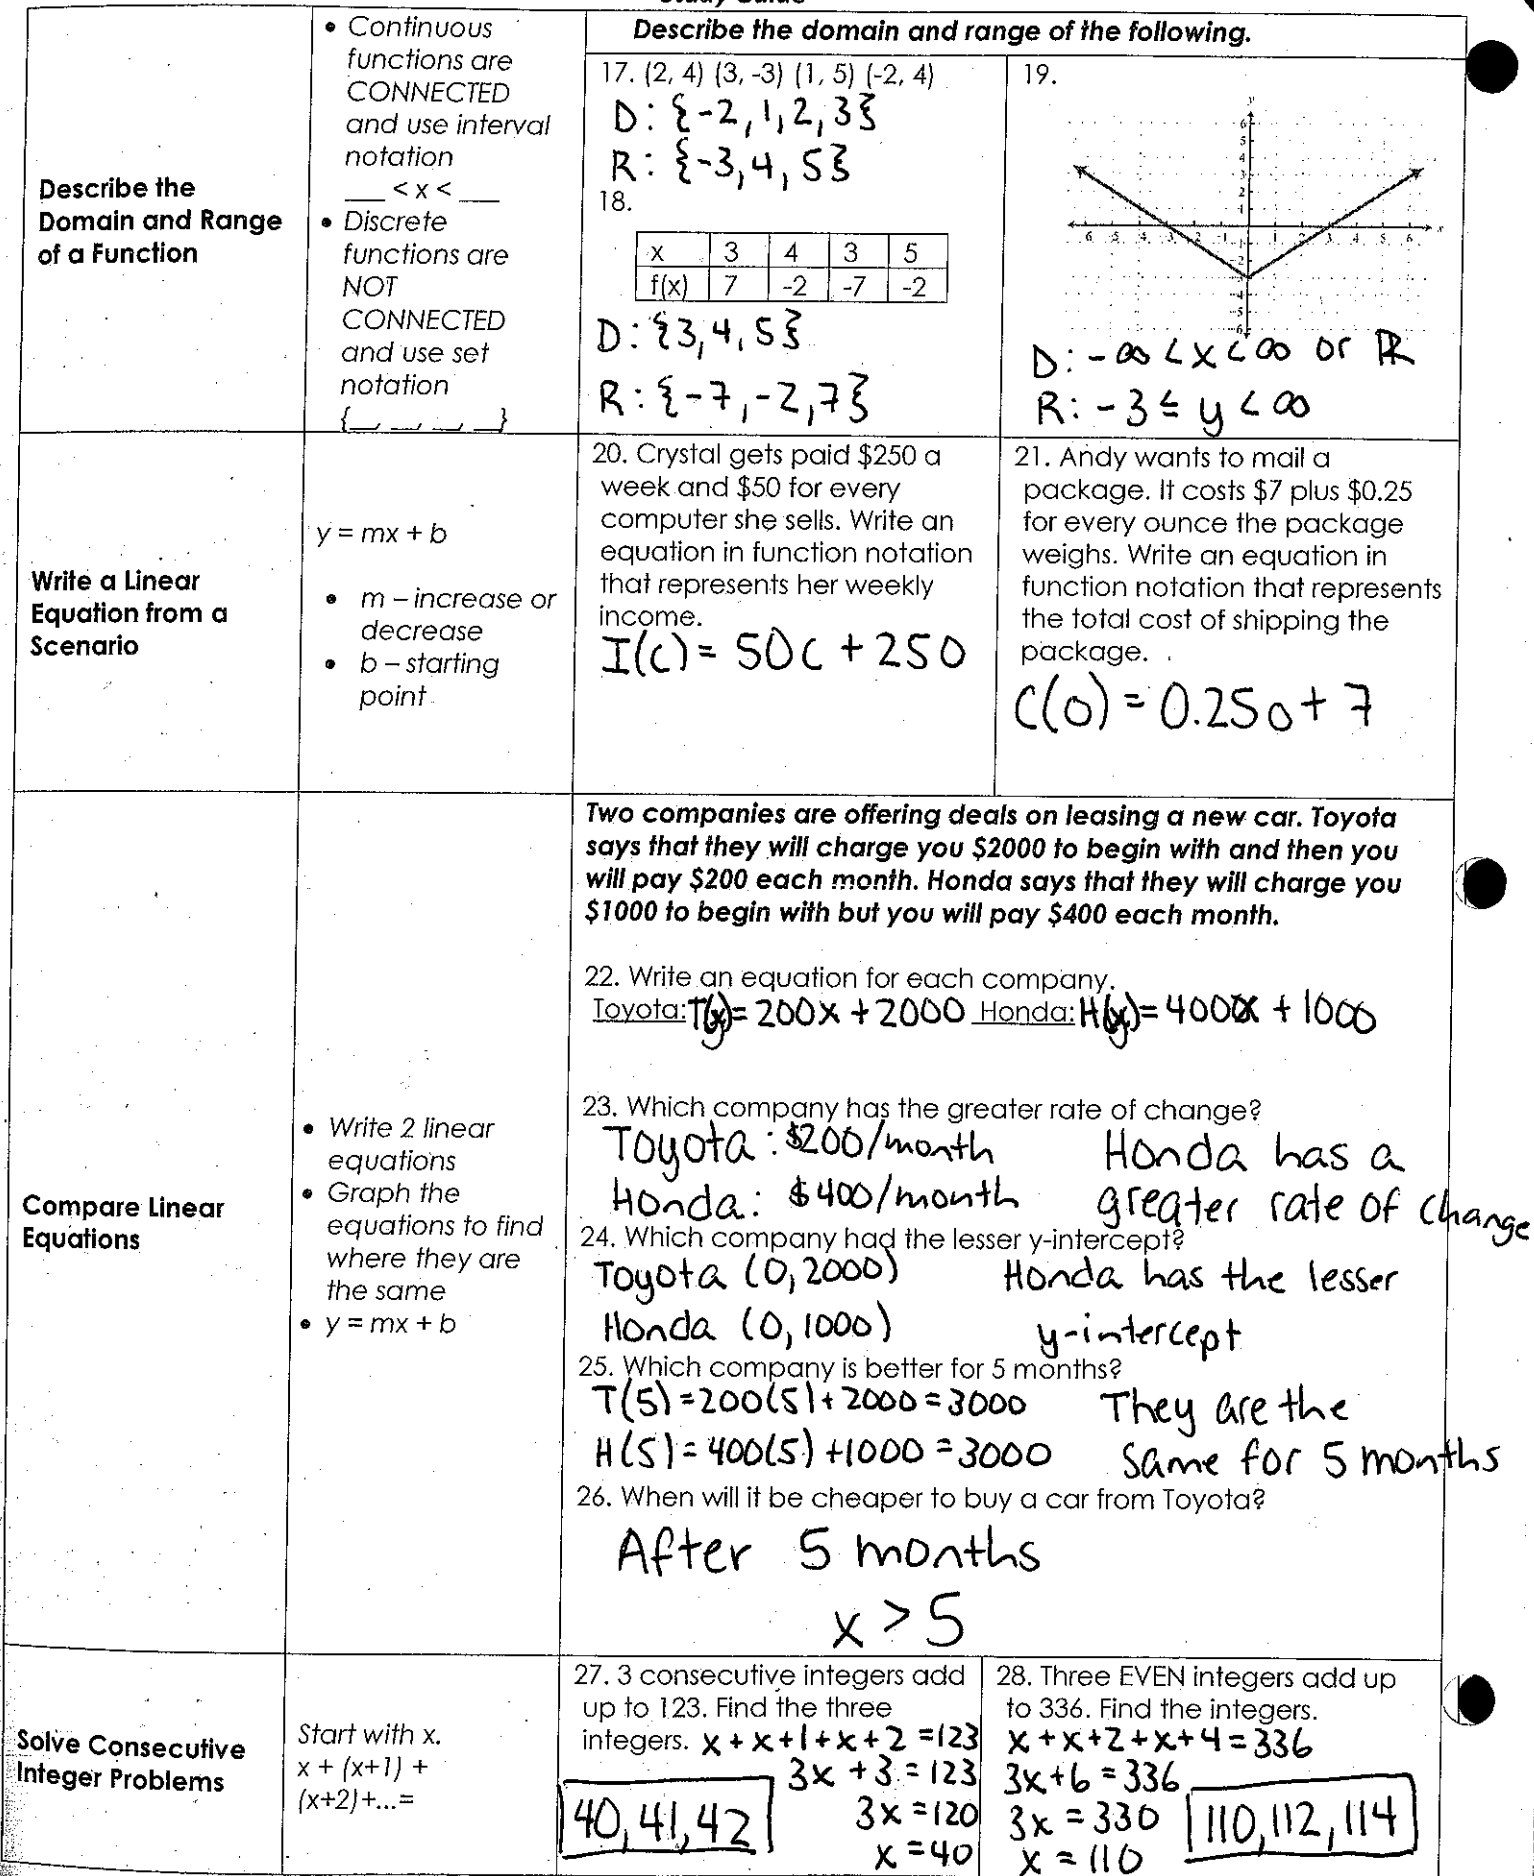 Study Guide
Describe the Domain and Range of a Function
• Continuous functions are CONNECTED and use interval notation
___ < x < ___
• Discrete functions are NOT CONNECTED and use set notation
{__, __, __, __}
Describe the domain and range of the following.
17. (2, 4) (3, -3) (1, 5) (-2, 4)
D: {-2, 1, 2, 3}
R: {-3, 4, 5}
18.
x 3 4 3 5
f(x) 7 -2 -7 -2
D: {3, 4, 5}
R: {-7, -2, 7}
19.
D: -∞ < x < ∞ or ℝ
R: -3 ≤ y < ∞
Write a Linear Equation from a Scenario
y = mx + b
• m – increase or decrease
• b – starting point
20. Crystal gets paid $250 a
week and $50 for every
computer she sells. Write an
equation in function notation
that represents her weekly
income.
I(c) = 50c + 250
21. Andy wants to mail a
package. It costs $7 plus $0.25
for every ounce the package
weighs. Write an equation in
function notation that represents
the total cost of shipping the
package.
C(o) = 0.25o + 7
Compare Linear Equations
• Write 2 linear equations
• Graph the equations to find where they are the same
• y = mx + b
Two companies are offering deals on leasing a new car. Toyota
says that they will charge you $2000 to begin with and then you
will pay $200 each month. Honda says that they will charge you
$1000 to begin with but you will pay $400 each month.
22. Write an equation for each company.
Toyota: T(x) = 200x + 2000 Honda: H(x) = 400x + 1000
23. Which company has the greater rate of change?
Toyota: $200/month Honda has a
Honda: $400/month greater rate of change
24. Which company had the lesser y-intercept?
Toyota (0, 2000) Honda has the lesser
Honda (0, 1000) y-intercept
25. Which company is better for 5 months?
T(5) = 200(5) + 2000 = 3000 They are the
H(5) = 400(5) + 1000 = 3000 same for 5 months
26. When will it be cheaper to buy a car from Toyota?
After 5 months
x > 5
Solve Consecutive Integer Problems
Start with x.
x + (x+1) +
(x+2)+...=
27. 3 consecutive integers add
up to 123. Find the three
integers. x + x+1 + x+2 = 123
3x + 3 = 123
3x = 120
x = 40
40, 41, 42
28. Three EVEN integers add up
to 336. Find the integers.
x + x+2 + x+4 = 336
3x+6 = 336
3x = 330
x = 110
110, 112, 114